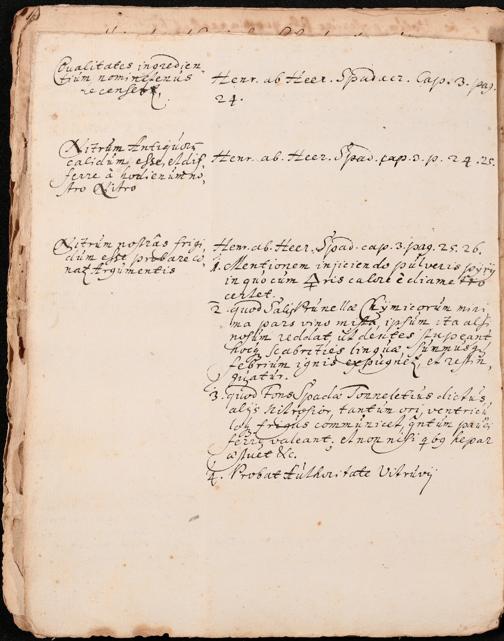 Qualitates ingredien-
tium nomine tenus
recenset
Henr. ab Heer. Spadacr. Cap. 3. pag.
24.
Nitrum Antiquor
calidum esse, et dif-
ferre à hodierno no-
stro Nitro
Henr. ab. Heer. Spad. cap. 3. p. 24. 25.
Nitrum nostras frigi-
dum esse probare co-
nat Argumentis
Henr. ab. Heer. Spad. cap. 3. pag. 25. 26.
1. Mentionem injiciendo pulveris pyrij
in quo cum calore è diametro
certet.
2. quod Salis Prunellae Chymicorum mini-
ma pars vino mista, ipsum ita alsi-
nosum reddat, ut dentes stupeant
hoc scabrities linguae, summusq
febrium ignis expugnet et restin-
guatur.
3. quod Fons Spadae Tonneletius dictus,
alijs nitrosior, tantum ori, ventricu-
lo frigus communicet, qntum pauci
ferre valeant, et non nisi hepar
aestuet &c.
4. Probat Authoritate Vitruvij